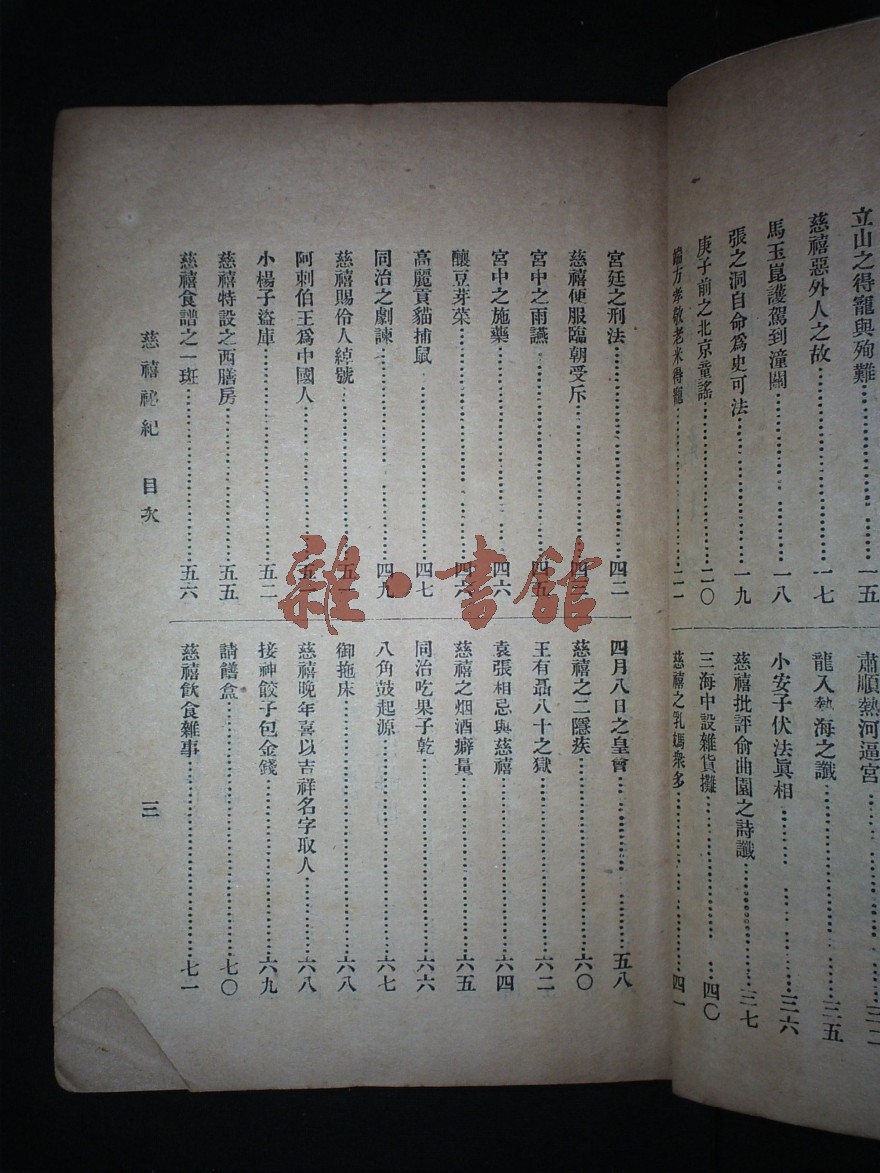 立山之得寵與殉難⋯⋯一五
慈禧惡外人之故⋯⋯一七
馬玉崑護駕到潼關⋯⋯一八
張之洞自命爲史可法⋯⋯一九
庚子前之北京童謠⋯⋯二〇
端方孝敬老米得寵⋯⋯二一
肅順熱河逼宮⋯⋯三二
龍入熱海之讖⋯⋯三五
小安子伏法眞相⋯⋯三六
慈禧批評俞曲園之詩讖⋯⋯三七
三海中設雜貨攤⋯⋯四〇
慈禧之乳媽衆多⋯⋯四一
宮廷之刑法⋯⋯四二
慈禧便服臨朝受斥⋯⋯四三
宮中之雨讌⋯⋯四五
宮中之施藥⋯⋯四六
釀豆芽菜⋯⋯四六
高麗貢貓捕鼠⋯⋯四七
同治之劇諫⋯⋯四九
慈禧賜伶人綽號⋯⋯五一
阿刺伯王爲中國人⋯⋯五一
小楊子盜庫⋯⋯五二
慈禧特設之西膳房⋯⋯五五
慈禧食譜之一斑⋯⋯五六
四月八日之皇會⋯⋯五八
慈禧之二隱疾⋯⋯六〇
王有聶八十之獄⋯⋯六二
袁張相忌與慈禧⋯⋯六四
慈禧之烟酒癖量⋯⋯六五
同治吃果子乾⋯⋯六六
八角鼓起源⋯⋯六七
御拖床⋯⋯六八
慈禧晚年喜以吉祥名字取人⋯⋯六八
接神餃子包金錢⋯⋯六九
請饍盒⋯⋯七〇
慈禧飲食雜事⋯⋯七一
慈禧祕紀 目次 三
雜·書館